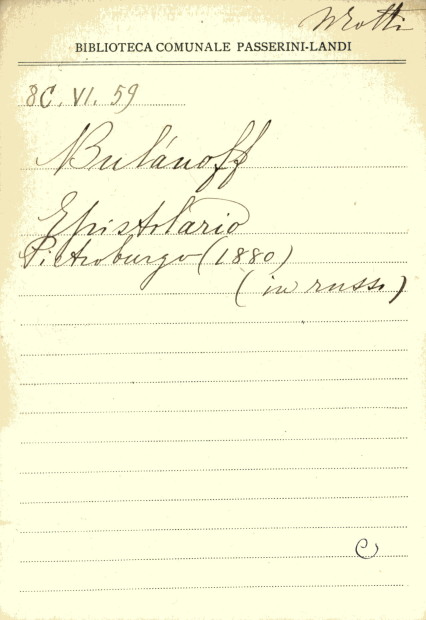 BIBLIOTECA COMUNALE PASSERINI-LANDI
8C. VI. 59
Bulánoff
Epistolario
Pietroburgo (1880)
(in russo)